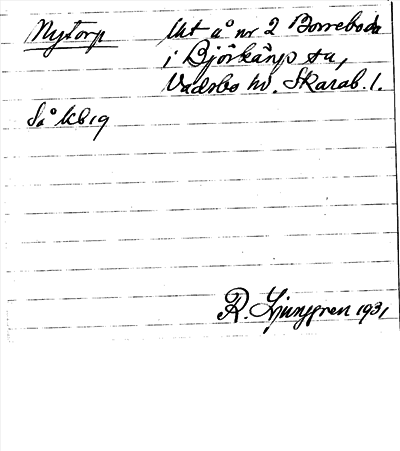 Nytorp
Ut å nr 2 Borreboda
i Björkäng sn,
Vadsbo hd. Skarab. l.
Så kb 19
R. Ljunggren 1931